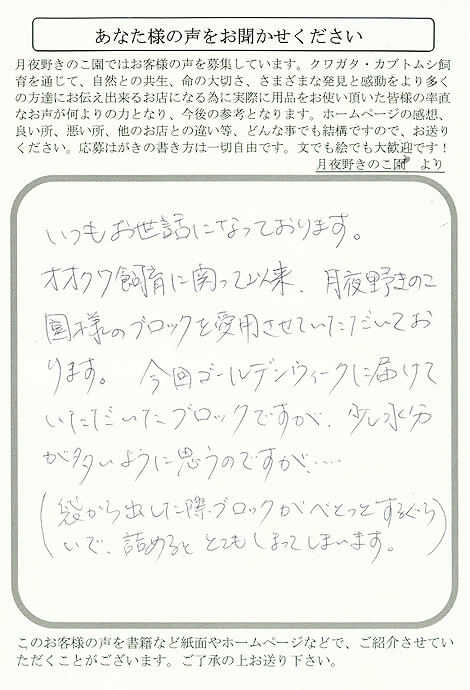 あなた様の声をお聞かせください
月夜野きのこ園ではお客様の声を募集しています。クワガタ・カブトムシ飼
育を通じて、自然との共生、命の大切さ、さまざまな発見と感動をより多く
の方達にお伝え出来るお店になる為に実際に用品をお使い頂いた皆様の率直
なお声が何よりの力となり、今後の参考となります。ホームページの感想、
良い所、悪い所、他のお店との違い等、どんな事でも結構ですので、お送り
ください。応募はがきの書き方は一切自由です。文でも絵でも大歓迎です！
月夜野きのこ園 より
いつもお世話になっております。
オオクワ飼育に関って以来、月夜野きのこ
園様のブロックを愛用させていただいてお
ります。 今回ゴールデンウィークに届けて
いただいたブロックですが、少し水分
が多いように思うのですが、……
(袋から出した際、ブロックがべとっとするぐら
いで、詰めると とてもしまってしまいます。)
このお客様の声を書籍など紙面やホームページなどで、ご紹介させてい
ただくことがございます。ご了承の上お送り下さい。